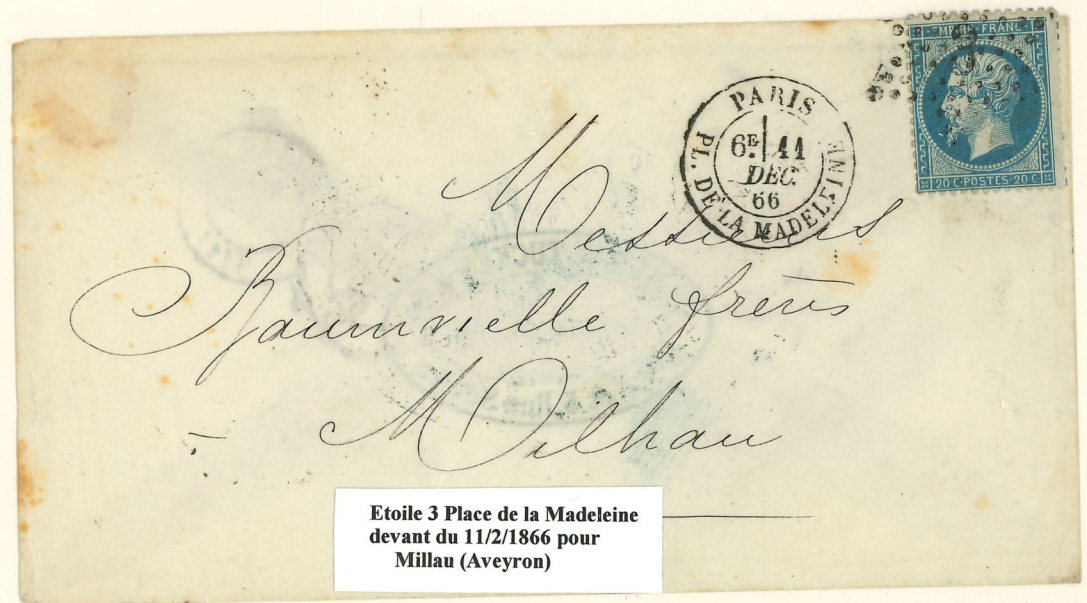 EMPIRE FRANC
20 C·POSTES·20 C
PARIS
6E 11
DEC.
66
PL. DE LA MADELEINE
Messieurs
frères
Milhau
Etoile 3 Place de la Madeleine
devant du 11/2/1866 pour
Millau (Aveyron)